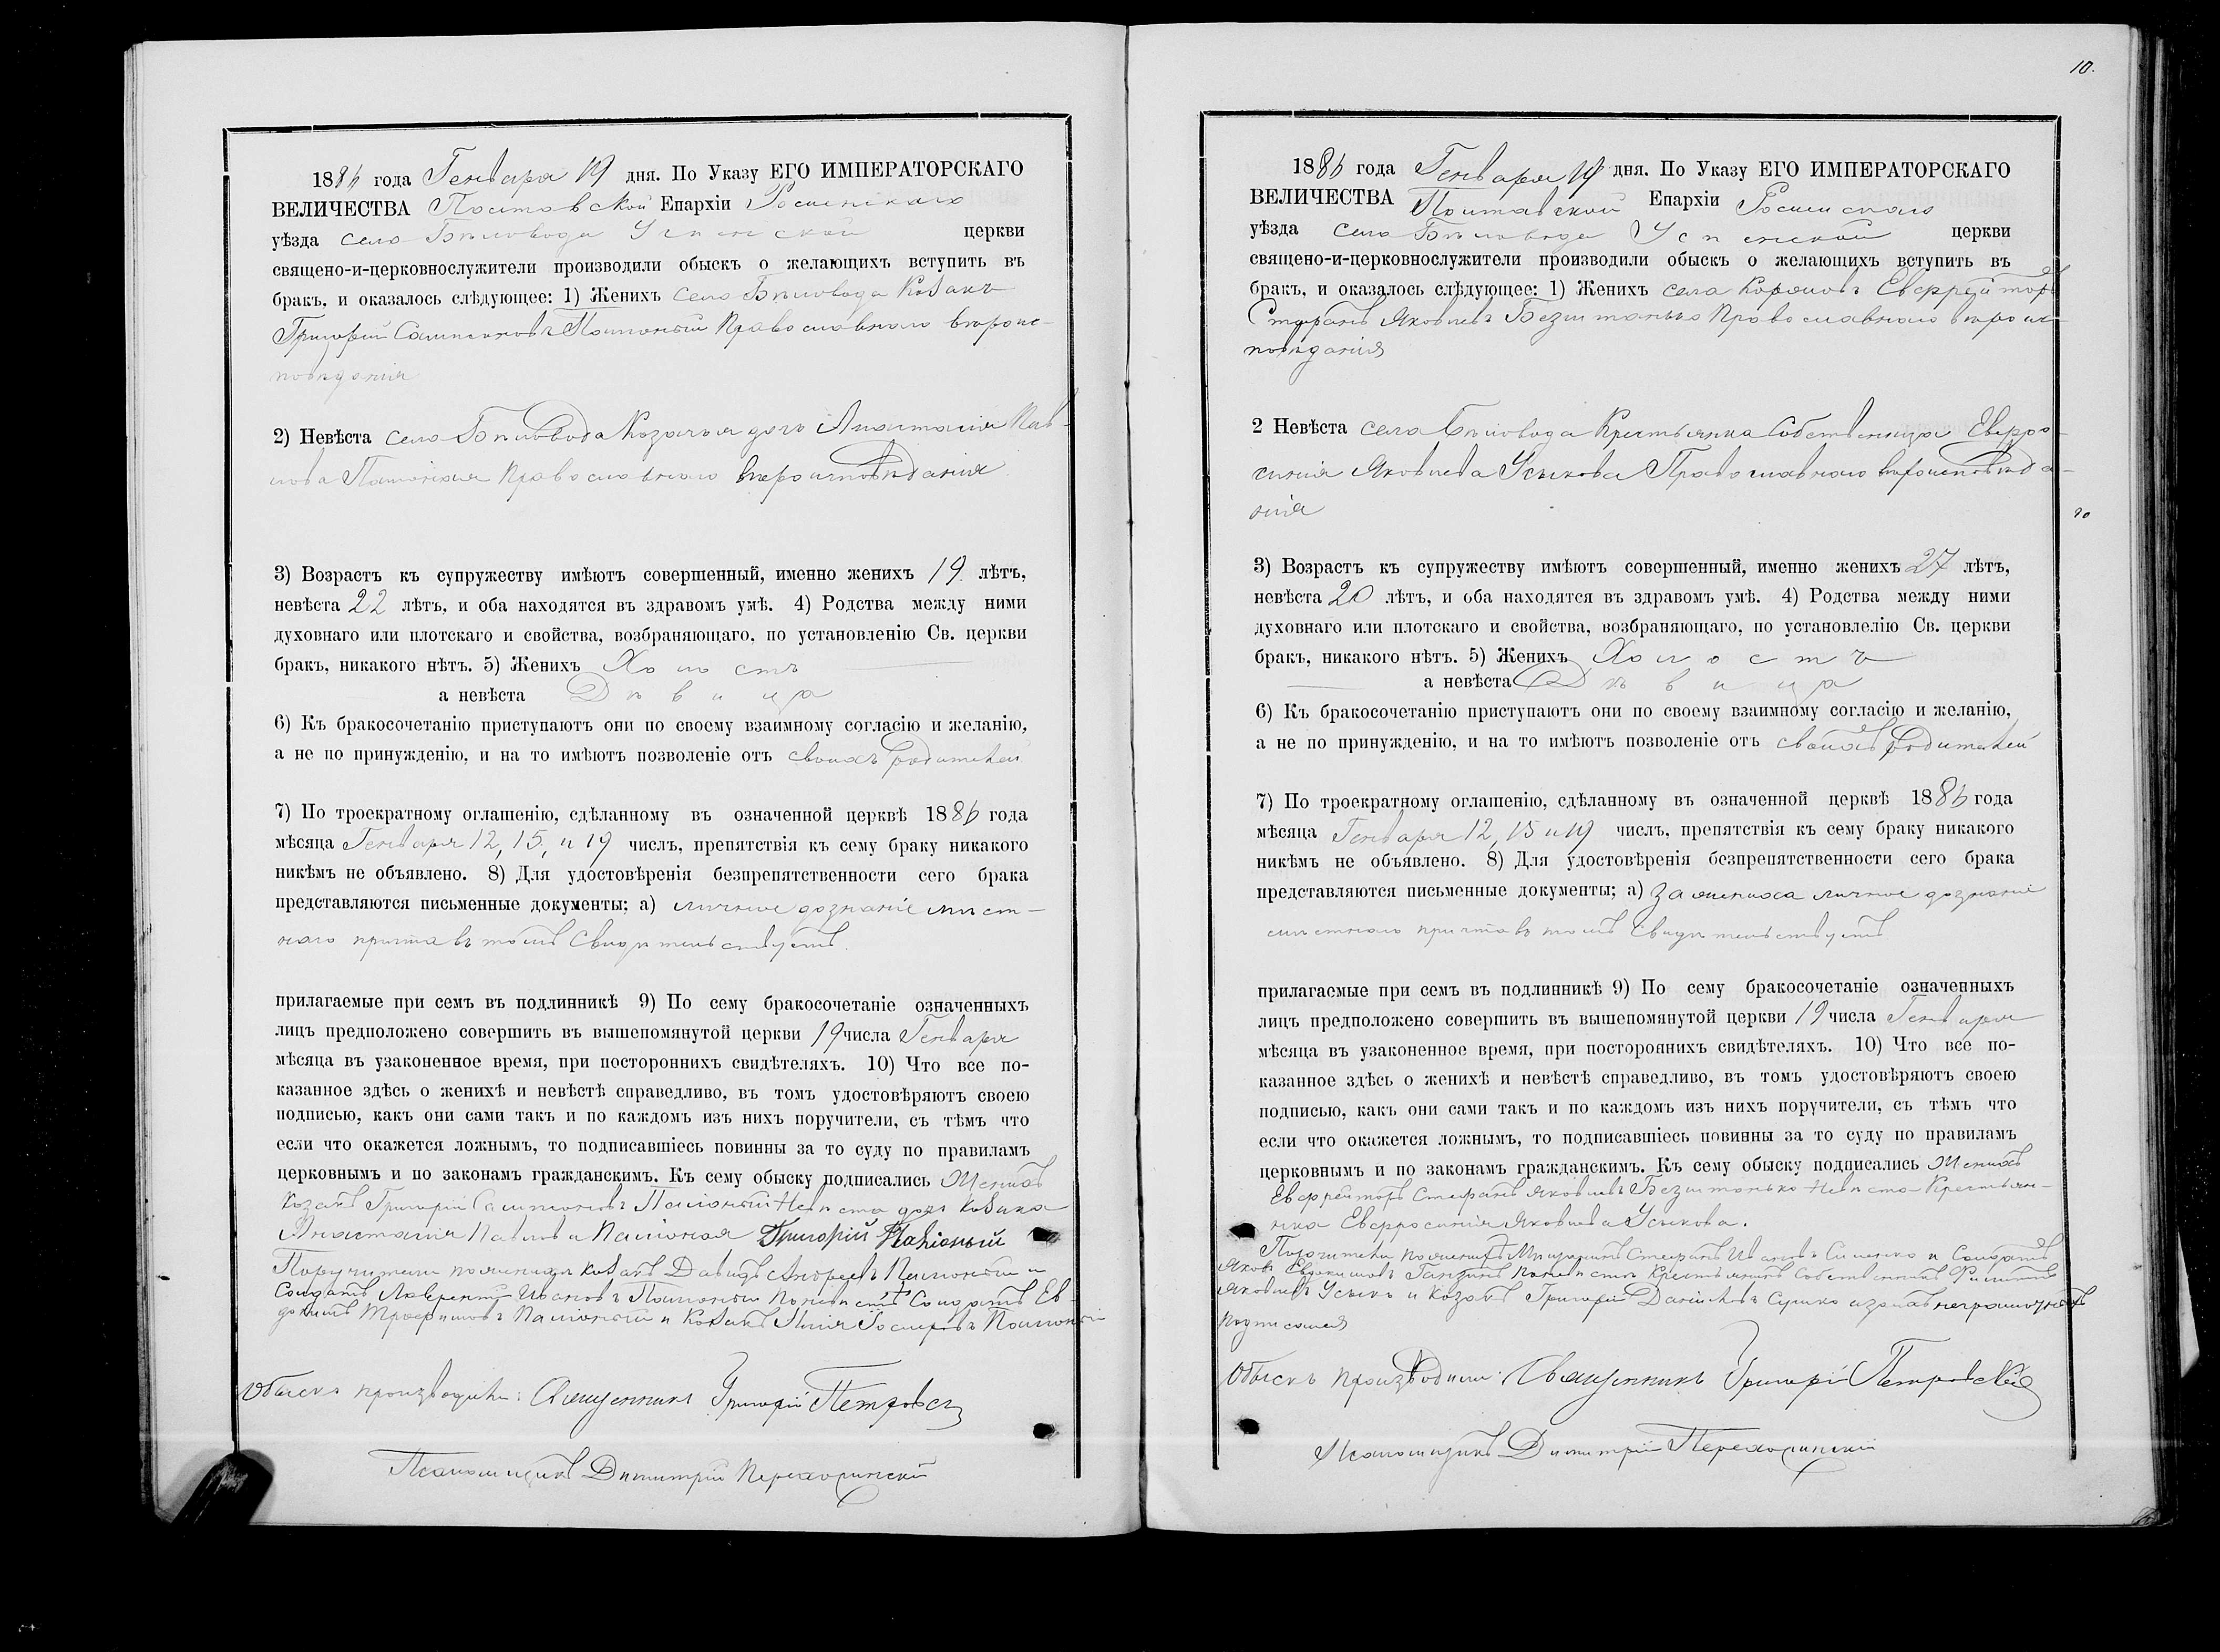 1886 года Генваря 19 дня. По Указу ЕГО ИМПЕРАТОРСКАГО
ВЕЛИЧЕСТВА Полтавской Епархіи Роменскаго
уѣзда села Бѣловода Успенской церкви
священо-и-церковнослужители производили обыскъ о желающихъ вступить въ
бракъ, и оказалось слѣдующее: 1) Женихъ села Бѣловода Козакъ
Григорій Сампсоновъ Православнаго вѣроис-
повѣданія
2) Невѣста села Бѣловода Козачья дочь Анастасія Пав-
лова Православнаго вѣроисповѣданія
3) Возрастъ къ супружеству имѣютъ совершенный, именно женихъ 19 лѣтъ,
невѣста 22 лѣтъ, и оба находятся въ здравомъ умѣ. 4) Родства между ними
духовнаго или плотскаго и свойства, возбраняющаго, по установленію Св. церкви
бракъ, никакого нѣтъ. 5) Женихъ Холостъ
а невѣста Дѣвица
6) Къ бракосочетанію приступаютъ они по своему взаимному согласію и желанію,
а не по принужденію, и на то имѣютъ позволеніе отъ своихъ родителей
7) По троекратному оглашенію, сдѣланному въ означенной церквѣ 1886 года
мѣсяца Генваря 12, 15, и 19 числъ, препятствія къ сему браку никакого
никѣмъ не объявлено. 8) Для удостовѣренія безпрепятственности сего брака
представляются письменные документы; а) личное дознаніе мѣст-
наго причта въ томъ свидѣтельствуетъ.
прилагаемые при семъ въ подлинникѣ 9) По сему бракосочетаніе означенныхъ
лицъ предположено совершить въ вышепомянутой церкви 19 числа Генваря
мѣсяца въ узаконенное время, при постороннихъ свидѣтеляхъ. 10) Что все по-
казанное здѣсь о женихѣ и невѣстѣ справедливо, въ томъ удостовѣряютъ своею
подписью, какъ они сами такъ и по каждомъ изъ нихъ поручители, съ тѣмъ что
если что окажется ложнымъ, то подписавшіесь повинны за то суду по правиламъ
церковнымъ и по законамъ гражданскимъ. Къ сему обыску подписались Женихъ
Козакъ Григорій Сампсоновъ Невѣста дочь Козака
Анастасія Павлова Григорій
Поручители по женихѣ Козакъ Давидъ Андреевъ и
Солдатъ Лаврентій Ивановъ по невѣстѣ Солдатъ Ев-
докимъ Трофимовъ и Козакъ Илія
Обыскъ производили: Священникъ Григорій Петровск
Псаломщикъ Димитрій
10.
1886 года Генваря 19 дня. По Указу ЕГО ИМПЕРАТОРСКАГО
ВЕЛИЧЕСТВА Полтавской Епархіи Роменскаго
уѣзда села Бѣловода Успенской церкви
священо-и-церковнослужители производили обыскъ о желающихъ вступить въ
бракъ, и оказалось слѣдующее: 1) Женихъ села Ефрейторъ
Стефанъ Яковлевъ Православнаго вѣроис-
повѣданія
2 Невѣста села Бѣловода Крестьянка Собственница Евфро-
синія Яковлева Усыкова Православнаго вѣроисповѣда-
нія
3) Возрастъ къ супружеству имѣютъ совершенный, именно женихъ 27 лѣтъ,
невѣста 20 лѣтъ, и оба находятся въ здравомъ умѣ. 4) Родства между ними
духовнаго или плотскаго и свойства, возбраняющаго, по установлелію Св. церкви
бракъ, никакого нѣтъ. 5) Женихъ Холостъ
а невѣста Дѣвица
6) Къ бракосочетанію приступаютъ они по своему взаимному согласію и желанію,
а не по принужденію, и на то имѣютъ позволеніе отъ своихъ родителей
7) По троекратному оглашенію, сдѣланному въ означенной церквѣ 1886 года
мѣсяца Генваря 12, 15 и 19 числъ, препятствія къ сему браку никакого
никѣмъ не объявлено. 8) Для удостовѣренія безпрепятственности сего брака
представляются письменные документы; а) за жениха личное дознаніе
мѣстнаго причта въ томъ свидѣтельствуетъ
прилагаемые при семъ въ подлинникѣ 9) По сему бракосочетаніе означенныхъ
лицъ предположено совершить въ вышепомянутой церкви 19 числа Генваря
мѣсяца въ узаконенное время, при постороннихъ свидѣтеляхъ. 10) Что все по-
казанное здѣсь о женихѣ и невѣстѣ справедливо, въ томъ удостовѣряютъ своею
подписью, какъ они сами такъ и по каждомъ изъ нихъ поручители, съ тѣмъ что
если что окажется ложнымъ, то подписавшіесь повинны за то суду по правиламъ
церковнымъ и по законамъ гражданскимъ. Къ сему обыску подписались Женихъ
Ефрейторъ Стефанъ Яковлевъ Невѣста Крестьян-
ка Евфросинія Яковлева Усыкова.
Поручители по женихѣ Стефанъ Ивановъ и Солдатъ
Яковъ Евдокимовъ по невѣстѣ Крестьянинъ Собственникъ Филиппъ
Яковлевъ Усыкъ и Козакъ Григорій Даніиловъ
Обыскъ производили: Священникъ Григорій Петровскій
Псаломщикъ Димитрій